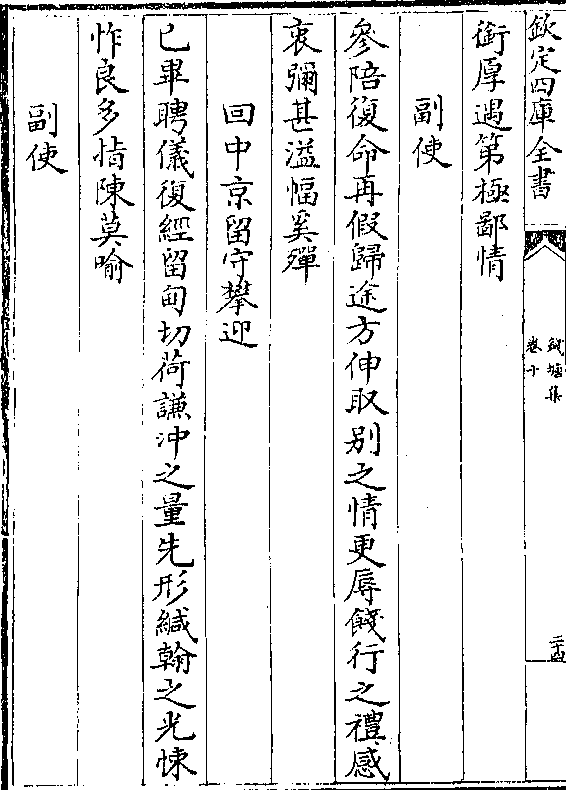 欽定四庫全書
錢塘集
卷十
二十四
銜厚遇第極鄙情
副使
參陪復命再假歸途方伸取别之情更辱餞行之禮感
衷彌甚溢幅奚殫
回中京留守攀迎
已畢聘儀復經留甸切荷謙冲之量先形緘翰之光悚
怍良多惝陳莫喻
副使